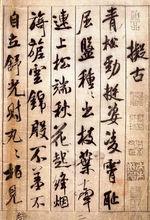 擬古
青松勁挺姿凌霄恥
屈盤種種出枝葉牽
連上松端秋花起絳烟
旖旎雲錦殷不羞不
自立舒光射丸丸柏見